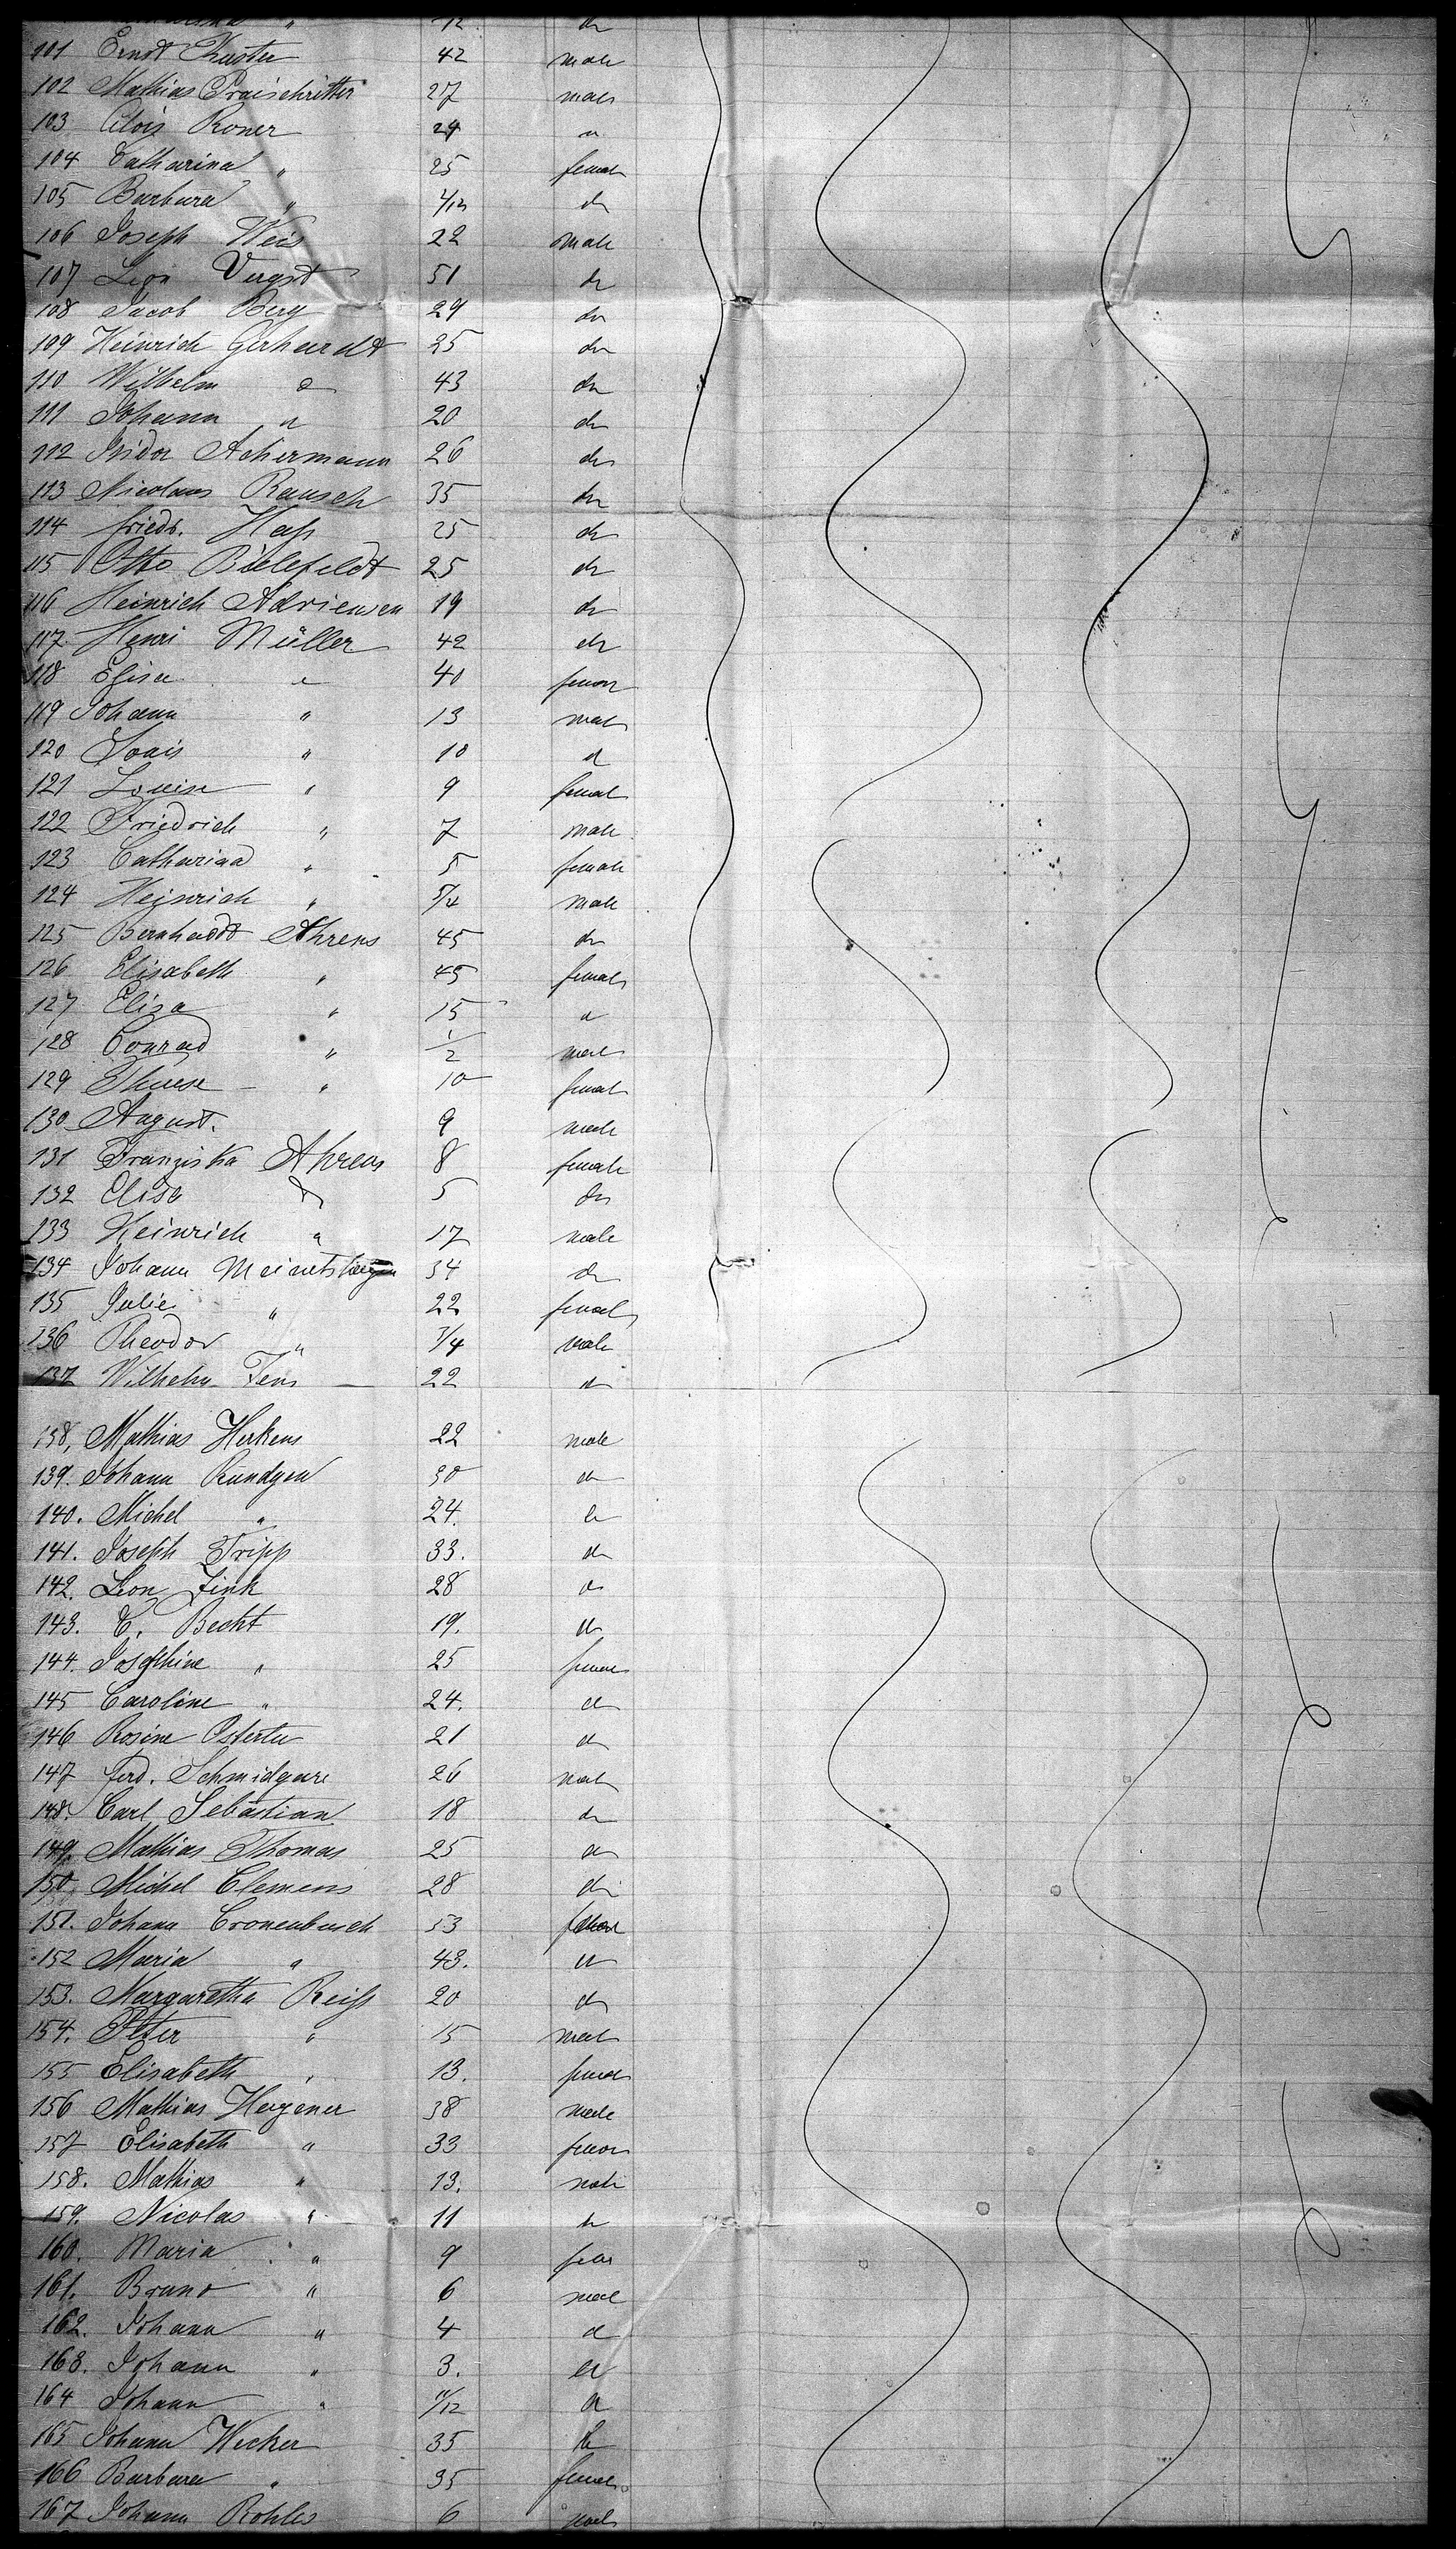 " 12 do
101 Ernst Kuster 42 male
102 Mathias Praischritter 27 male
103 Alois Roner 24 "
104 Catharina " 25 female
105 Barbara " 1/12 do
106 Joseph Weis 22 male
107 Vergst 51 do
108 Jacob Berg 29 do
109 Heinrich Gerhardt 25 do
110 Wilhelm do 43 do
111 Johann " 20 do
112 Isidor Achermann 26 do
113 Nicolaus Rausch 35 do
114 Friedr. Haß 25 do
115 Otto Bielefeldt 25 do
116 Heinrich Adriensen 19 do
117 Henri Müller 42 do
118 Elisa " 40 female
119 Johann " 13 male
120 Louis " 10 d
121 Louise " 9 female
122 Friedrich " 7 male
123 Catharina " 5 female
124 Heinrich " 5/4 male
125 Bernhardt Ahrens 45 do
126 Elisabeth " 45 female
127 Elisa " 15 d
128 Conrad " 1/2 male
129 Therese " 10 female
130 August. 9 male
131 Franziska Ahrens 8 female
132 Elise do 5 do
133 Heinrich " 17 male
134 Johann 34 do
135 Julie " 22 female
136 Theodor " 3/4 male
137 Wilhelm Fens 22 d
138, Mathias Herkens 22 male
139. Johann Rundgen 30 do
140. Michel " 24. do
141. Joseph Tripp 33. do
142. Leon Fink 28 do
143. C. Becht 19. do
144. Josephine " 25 female
145 Caroline " 24. d
146 Rosine 21 do
147 Ferd. Schmidgare 26 male
148. Carl Sebastian 18 do
149. Mathias Thomas 25 do
150. Michel Clemens 28 do
151. Johann Cronenbusch 53
152 Maria " 43. d
153. Margaretha Reiß 20 do
154. Peter " 15 male
155 Elisabeth " 13. female
156 Mathias Hergener 38 male
157 Elisabeth " 33 female
158. Mathias " 13. male
159. Nicolas " 11 do
160. Maria " 9 fem
161. Bruno " 6 male
162. Johann " 4 d
163. Johann " 3. d
164 Johann " 11/12 d
165 Johann Wecker 35 do
166 Barbara " 35 female
167 Johann Rohles 6 male